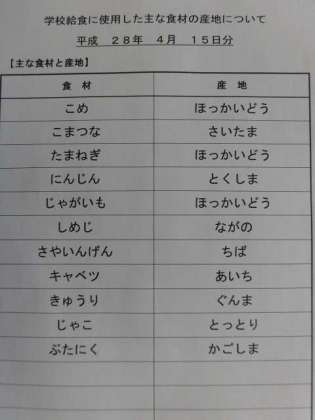 学校給食に使用した主な食材の産地について
平成 28年 4月 15日分
【主な食材と産地】
食 材 産 地
こめ ほっかいどう
こまつな さいたま
たまねぎ ほっかいどう
にんじん とくしま
じゃがいも ほっかいどう
しめじ ながの
さやいんげん ちば
キャベツ あいち
きゅうり ぐんま
じゃこ とっとり
ぶたにく かごしま